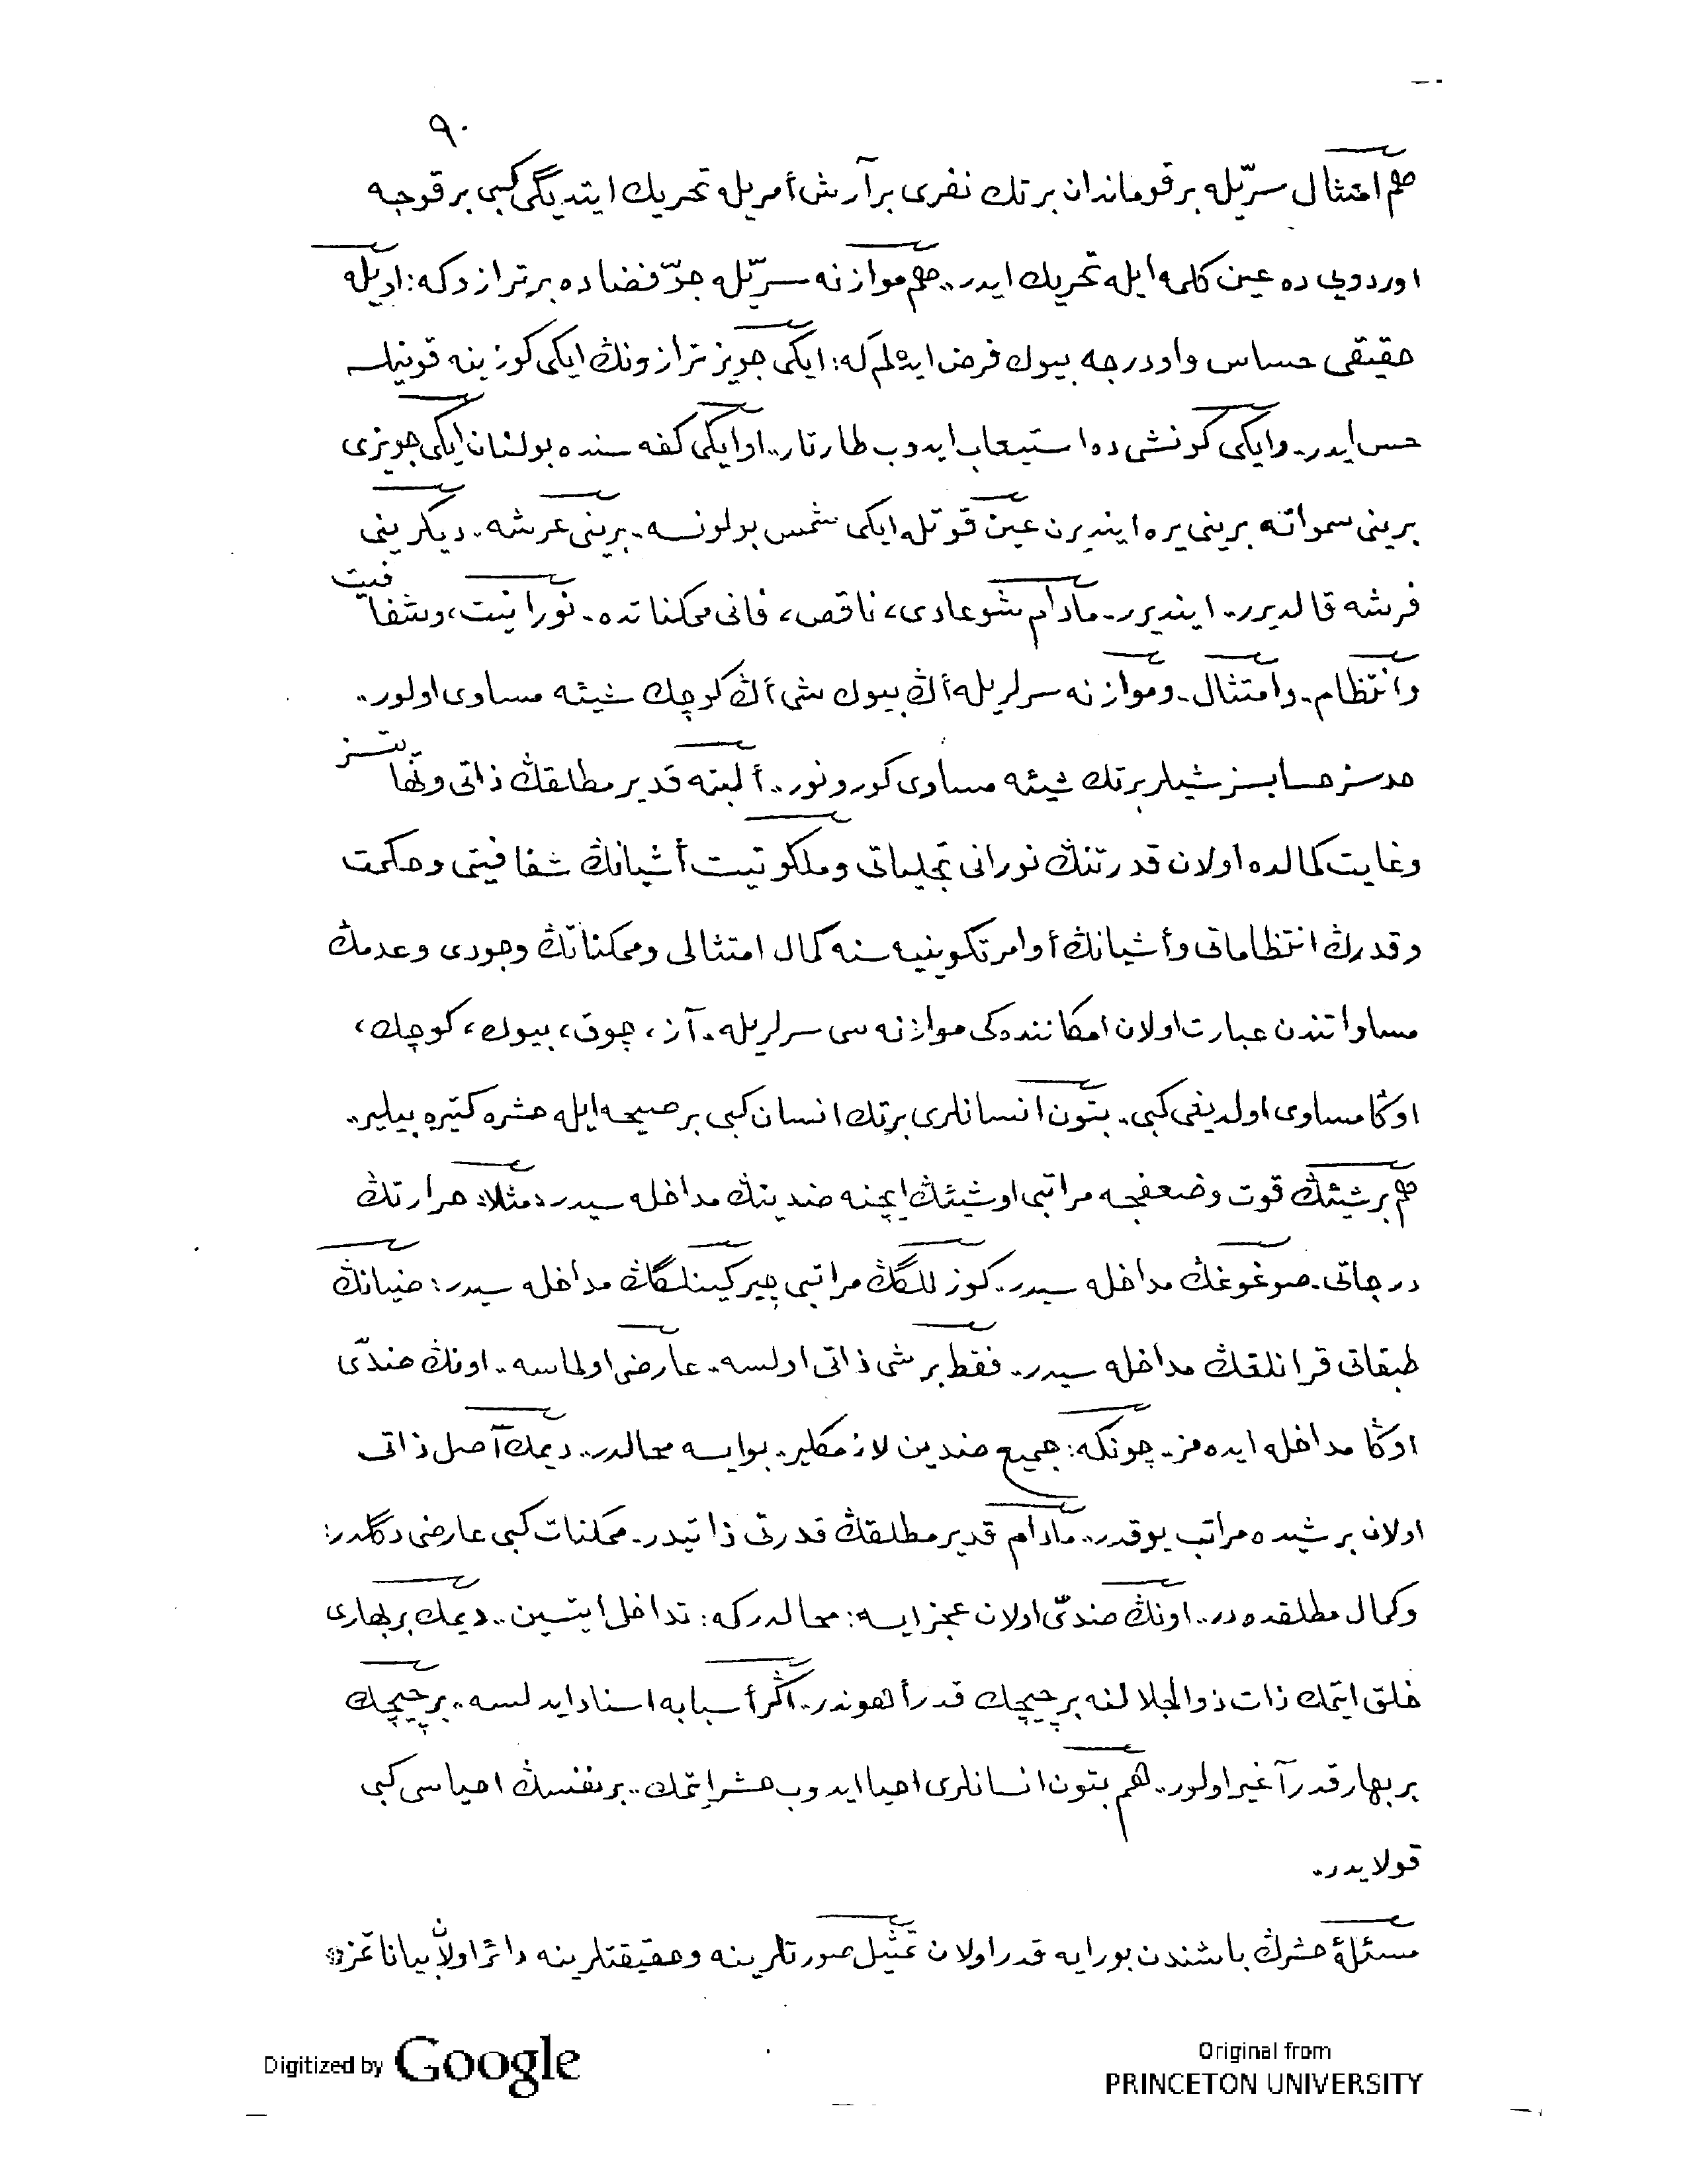 ٩٠
هم امتثال سرّيله بر قوماندان بر تك نفرى بر آرش أمريله تحريك ايتديگى كبى بر قوجه
اوردويى ده عين كلمه ايله تحريك ايدر.. هم موازنه سرّيله جوّ فضاده بر ترازو كه: اويله
حقيقى حساس و او درجه بيوك فرض ايده‌لم كه: ايكى جويز ترازونڭ ايكى كوزينه قونيلسه
حس ايدر. و ايكى كونشى ده استيعاب ايدوب طارتار.. او ايكى كفه سنده بولنان ايكى جويزى
برينى سمواته برينى يره اينديرن عين قوتله ايكى شمس بولونسه. برينى عرشه. ديكرينى
فرشه قالديرر. اينديرر. مادام شو عادى، ناقص، فانى ممكناتده. نورانيت، و شفافيت
و انتظام. و امتثال. و موازنه سرلريله أڭ بيوك شى أڭ كوچك شيئه مساوى اولور..
حدسز حسابسز شيلر بر تك شيئه مساوى كورونور.. ألبته قدير مطلقڭ ذاتى و نهايتسز
و غايت كمالده اولان قدرتنڭ نورانى تجلياتى و ملكوتيت أشيانڭ شفافيتى و حكمت
و قدرڭ انتظاماتى و أشيانڭ أوامر تكوينيه سنه كمال امتثالى و ممكناتڭ وجودى و عدمڭ
مساواتندن عبارت اولان امكاننده‌كى موازنه سى سرلريله. آز، چوق، بيوك، كوچك،
اوڭا مساوى اولديغى كبى. بتون انسانلرى بر تك انسان كبى بر صيحه ايله حشره كتيره بيلير..
هم بر شيئڭ قوت و ضعفجه مراتبى او شيئڭ ايچنه ضدينڭ مداخله سيدر: مثلا: حرارتڭ
درجاتى. صوغوغڭ مداخله سيدر. كوزللگڭ مراتبى چيركينلگڭ مداخله سيدر: ضيانڭ
طبقاتى قرانلقڭ مداخله سيدر. فقط بر شى ذاتى اولسه. عارضى اولماسه.. اونڭ ضدّى
اوڭا مداخله ايده‌مز. چونكه: جميع ضدين لازمكلير. بو ايسه محالدر.. ديمك آصل ذاتى
اولان بر شيده مراتب يوقدر.. مادام قدير مطلقڭ قدرتى ذاتيدر. ممكنات كبى عارضى دگلدر:
و كمال مطلقده‌در.. اونڭ ضدّى اولان عجز ايسه: محالدر كه: تداخل ايتسين.. ديمك بر بهارى
خلق ايتمك ذات ذوالجلالنه بر چيچك قدر أهوندر.. اگر أسبابه اسناد ايدلسه.. بر چيچك
بر بهار قدر آغير اولور.. هم بتون انسانلرى احيا ايدوب حشر ايتمك.. بر نفسڭ احياسى كبى
قولايدر.
مسئلۀ حشرڭ باشندن بورايه قدر اولان تمثيل صورتلرينه و حقيقتلرينه دائر اولان بياناتمز
Digitized by Google
Original from
PRINCETON UNIVERSITY